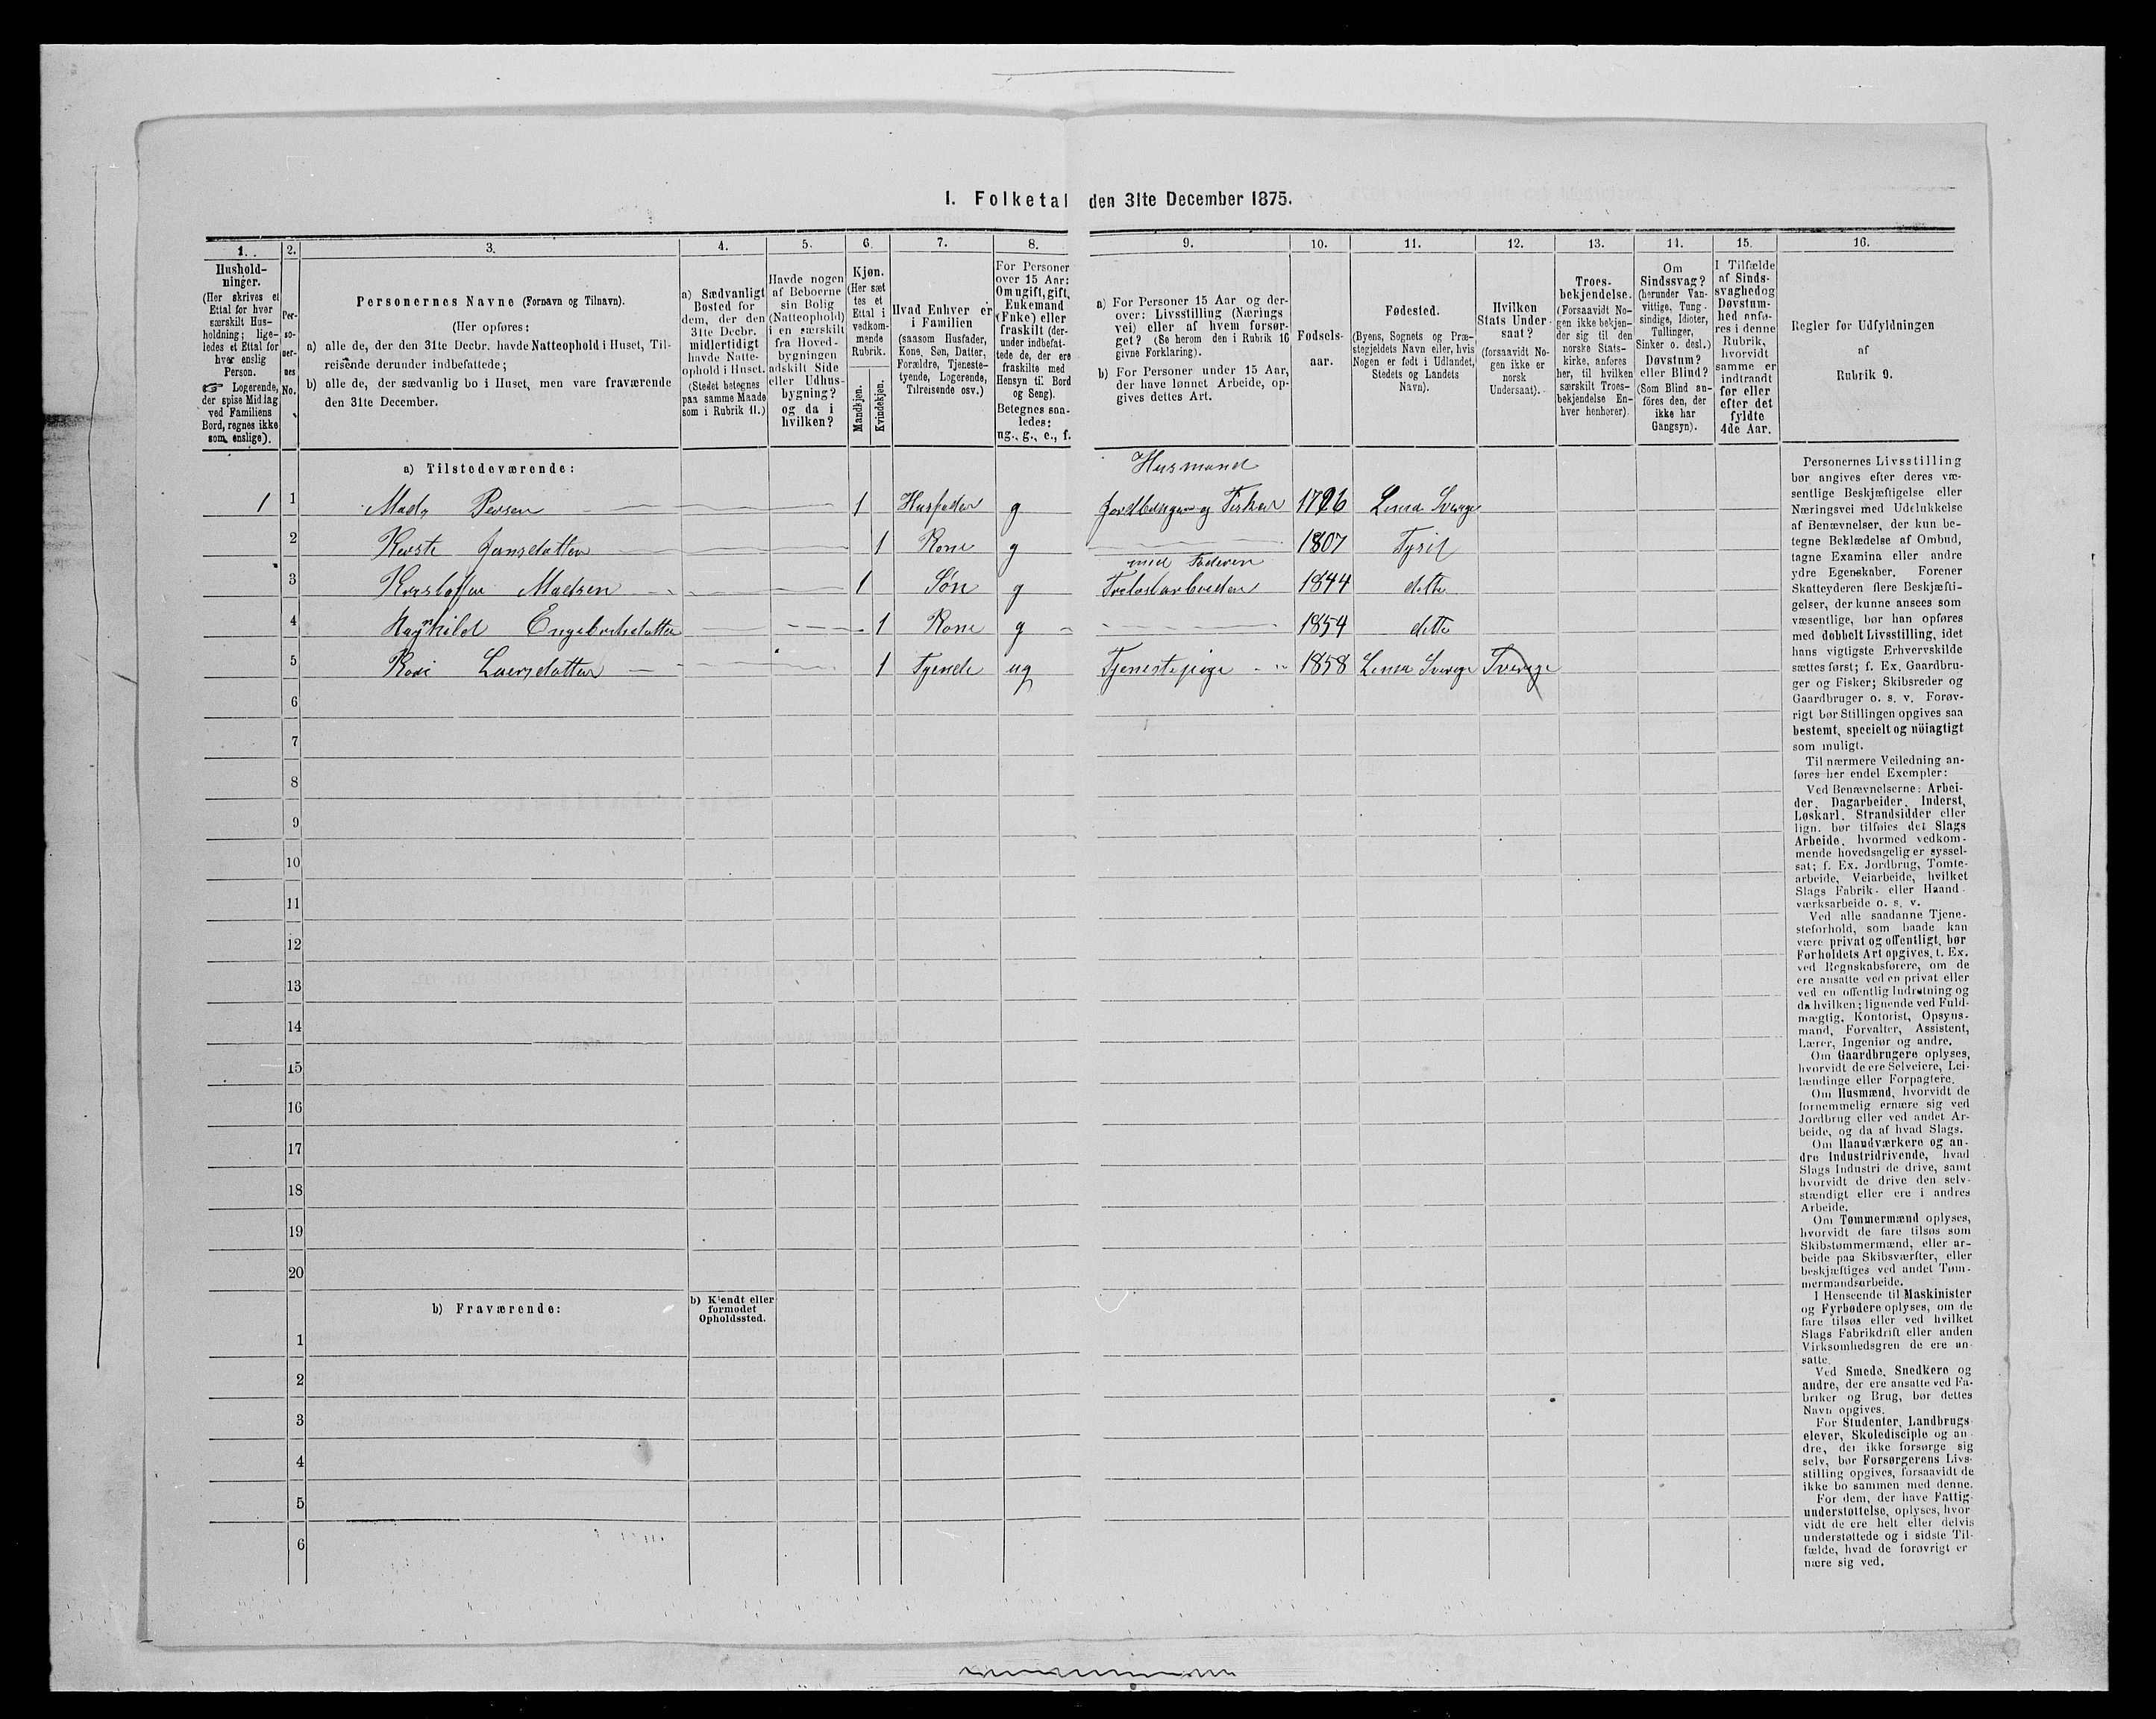 I. Folketal den 31te December 1875.
1.
Hushold-
ninger.
(Her skrives et
Ettal for hver
særskilt Hus-
holdning; lige-
ledes et Ettal for
hver enslig
Person.
☞ Logerende,
der spise Middag
ved Familiens
Bord, regnes ikke
som enslige).
2.
Per-
so-
ner-
nes
No.
3.
Personernes Navne (Fornavn og Tilnavn).
(Her opføres:
a) alle de, der den 31te Decbr. havde Natteophold i Huset, Til-
reisende derunder indbefattede;
b) alle de, der sædvanlig bo i Huset, men vare fraværende
den 31te December.
4.
a) Sædvanligt
Bosted for
dem, der den
31te Decbr.
midlertidigt
havde Natte-
ophold i Huset.
(Stedet betegnes
paa samme Maade
som i Rubrik 11.)
5.
Havde nogen
af Beboerne
sin Bolig
(Natteophold)
i en særskilt
fra Hoved-
bygningen
adskilt Side
eller Udhus-
bygning?
og da i
hvilken?
6.
Kjøn.
(Her sæt
tes et
Ettal i
vedkom-
mende
Rubrik.
Mandkjøn.
Kvindekjøn.
7.
Hvad Enhver er
i Familien
(saasom Husfader,
Kone, Søn, Datter,
Forældre, Tjeneste-
tyende, Logerende,
Tilreisende osv.)
8.
For Personer
over 15 Aar:
Om ugift, gift,
Enkemand
(Enke) eller
fraskilt (der-
under indbefat-
tede de, der ere
fraskilte med
Hensyn til Bord
og Seng).
Betegnes saa-
ledes:
ug., g., e., f.
9.
a) For Personer 15 Aar og der-
over: Livsstilling (Nærings
vei) eller af hvem forsør-
get? (Se herom den i Rubrik 16
givne Forklaring).
b) For Personer under 15 Aar,
der have lønnet Arbeide, op-
gives dettes Art.
10.
Fødsels-
aar.
11.
Fødested.
(Byens, Sognets og Præ-
stegjeldets Navn eller, hvis
Nogen er født i Udlandet,
Stedets og Landets
Navn).
12.
Hvilken
Stats Under-
saat?
(forsaavidt No-
gen ikke er
norsk
Undersaat).
13.
Troes-
bekjendelse.
(Forsaavidt No-
gen ikke bekjen-
der sig til den
norske Stats-
kirke, anføres
her, til hvilken
særskilt Troes-
bekjendelse En-
hver henhører).
14.
Om
Sindssvag?
(herunder Van-
vittige, Tung-
sindige, Idioter,
Tullinger,
Sinker o. desl.)
Døvstum?
eller Blind?
(Som Blind an-
föres den, der
ikke har
Gangsyn).
15.
I Tilfælde
af Sinds-
svaghed og
Døvstum-
hed anfø-
res i denne
Rubrik,
hvorvidt
samme er
indtraadt
før eller
efter det
fyldte
4de Aar.
16.
Regler for Udfyldningen
af
Rubrik 9.
a) Tilstedeværende:
Husmand
1 1 Mads Persen 1 Husfader g Jordbruger og Fisker 1796 Lima Sverige
2 Kerste Jonsdatter 1 Kone g 1807 Tysil
med Faderen
3 Kristoffer Madsen 1 Søn g 1844 ditto
4 Engebretsdatter 1 Kone g 1854 ditto
5 Kari Larsdatter 1 Tjende ug Tjenestepige 1858 Lima Sverige Sverige
6
7
8
9
10
11
12
13
14
15
16
17
18
19
20
b) Fraværende:
b) Kjendt eller
formodet
Opholdssted.
1
2
3
4
5
6
Personernes Livsstilling
bør angives efter deres væ-
sentlige Beskjæftigelse eller
Næringsvei med Udelukkelse
af Benævnelser, der kun be-
tegne Beklædelse af Ombud,
tagne Examina eller andre
ydre Egenskaber. Forener
Skatteyderen flere Beskjæfti-
gelser, der kunne ansees som
væsentlige, bør han opføres
med dobbelt Livsstilling, idet
hans vigtigste Erhvervskilde
sættes først; f. Ex. Gaardbru-
ger og Fisker; Skibsreder og
Gaardbruger o. s. v. Forøv-
rigt bør Stillingen opgives saa
bestemt, specielt og nöiagtigt
som muligt.
Til nærmere Veiledning an-
føres her endel Exempler:
Ved Benævnelserne: Arbei-
der, Dagarbeider, Inderst,
Løskarl, Strandsidder eller
lign. bør tilføies det Slags
Arbeide, hvormed vedkom-
mende hovedsagelig er syssel-
sat; f. Ex. Jordbrug, Tomte-
arbeide, Veiarbeide, hvilket
Slags Fabrik- eller Haand-
værksarbeide o. s. v.
Ved alle saadanne Tjene-
steforhold, som baade kan
være privat og offentligt, bør
Forholdets Art opgives, f. Ex.
ved Regnskabsførere, om de
ere ansatte ved en privat eller
ved en offentlig Indretning og
da hvilken; lignende ved Fuld-
mægtig, Kontorist, Opsyns-
mand, Forvalter, Assistent,
Lærer, Ingeniør og andre.
Om Gaardbrugere oplyses,
hvorvidt de ere Selveiere, Lei-
lændinge eller Forpagtere.
Om Husmænd, hvorvidt de
fornemmelig ernære sig ved
Jordbrug eller ved andet Ar-
beide, og da af hvad Slags.
Om Haandværkere og an-
dre Industridrivende, hvad
Slags Industri de drive, samt
hvorvidt de drive den selv-
stændigt eller ere i andres
Arbeide.
Om Tømmermænd oplyses,
hvorvidt de fare tilsøs som
Skibstømmermænd, eller ar-
beide paa Skibsværfter, eller
beskjæftiges ved andet Tøm-
mermandsarbeide.
I Henseende til Maskinister
og Fyrbødere oplyses, om de
fare tilsøs eller ved hvilket
Slags Fabrikdrift eller anden
Virksomhedsgren de ere an-
satte.
Ved Smede, Snedkere og
andre, der ere ansatte ved Fa-
briker og Brug, bør dettes
Navn opgives.
For Studenter, Landbrugs-
elever, Skoledisciple og an-
dre, der ikke forsørge sig
selv, bør Forsørgerens Livs-
stilling opgives, forsaavidt de
ikke bo sammen med denne.
For dem, der have Fattig-
understøttelse, oplyses, hvor-
vidt de ere helt eller delvis
understøttede og i sidste Til-
fælde, hvad de forøvrigt er-
nære sig ved.